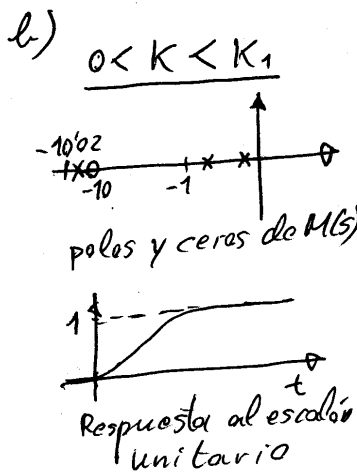 b)
0 < K < K1
-10'02
-10
-1
polos y ceros de M(s)
1
t
Respuesta al escalón
unitario